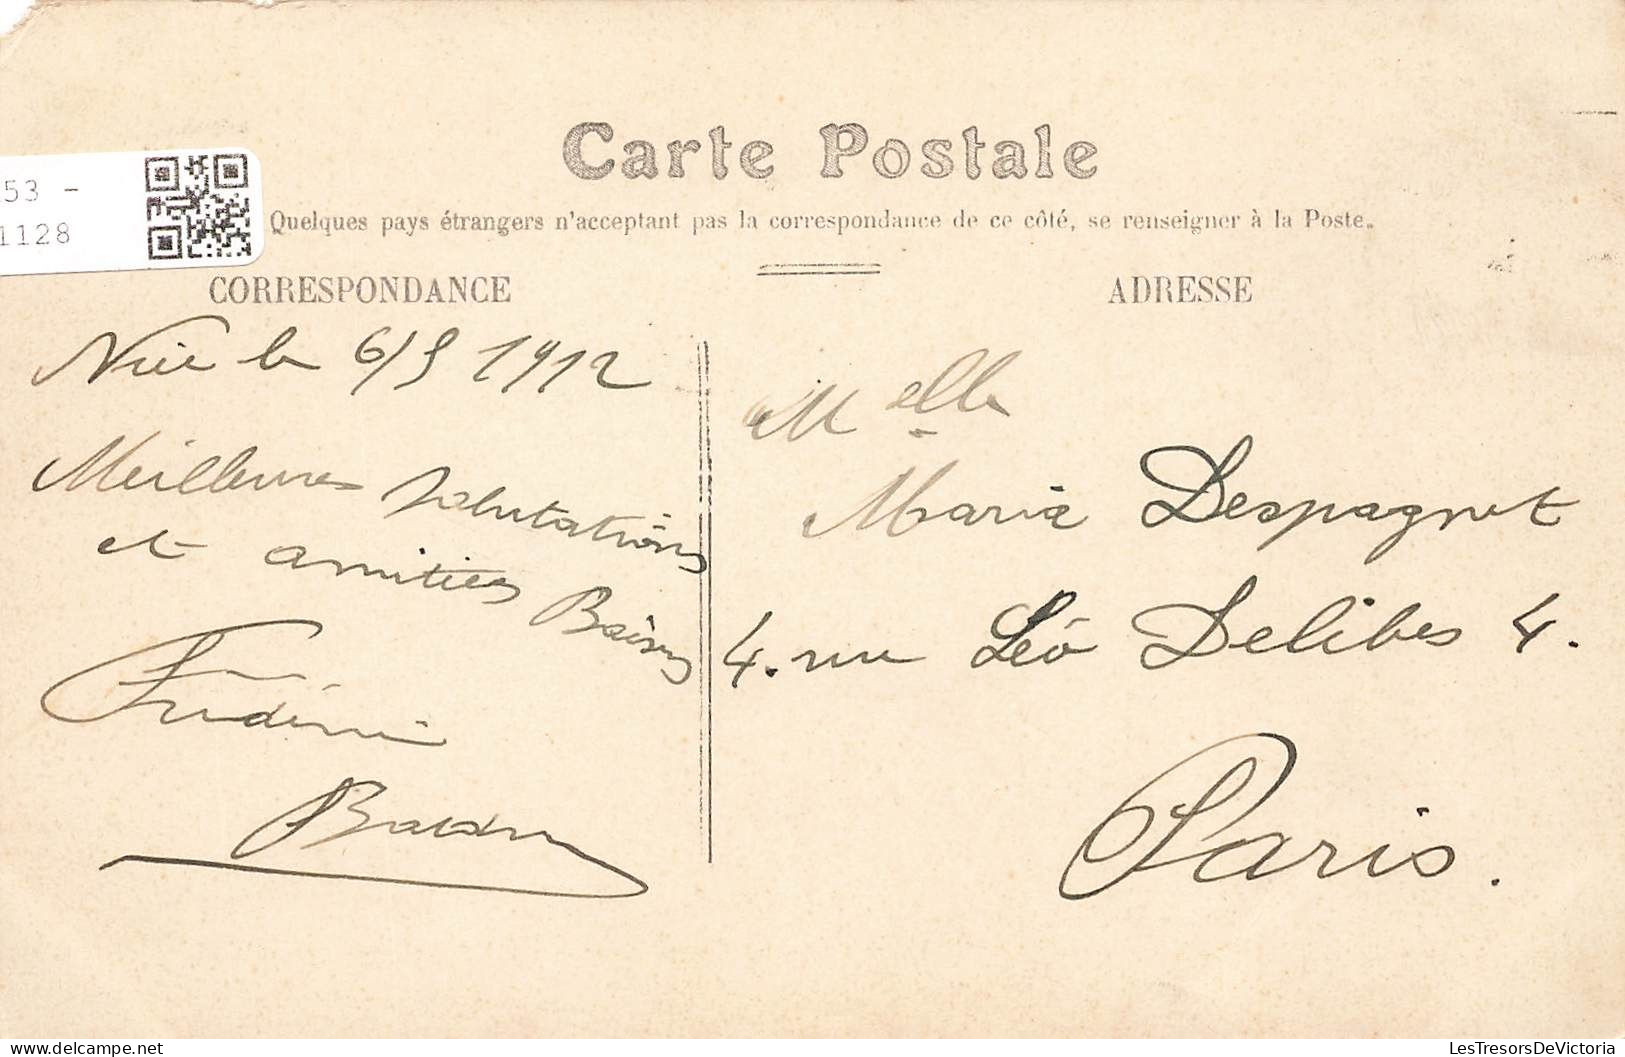 Carte Postale
53 -
1128
Quelques pays étrangers n'acceptant pas la correspondance de ce côté, se renseigner à la Poste.
CORRESPONDANCE
Nice le 6/5 1912
Meilleures salutations
et amitiés Baisers
ADRESSE
Melle
Maria Despagnet
4. rue Léo Delibes 4.
Paris.
LesTresorsDeVictoria